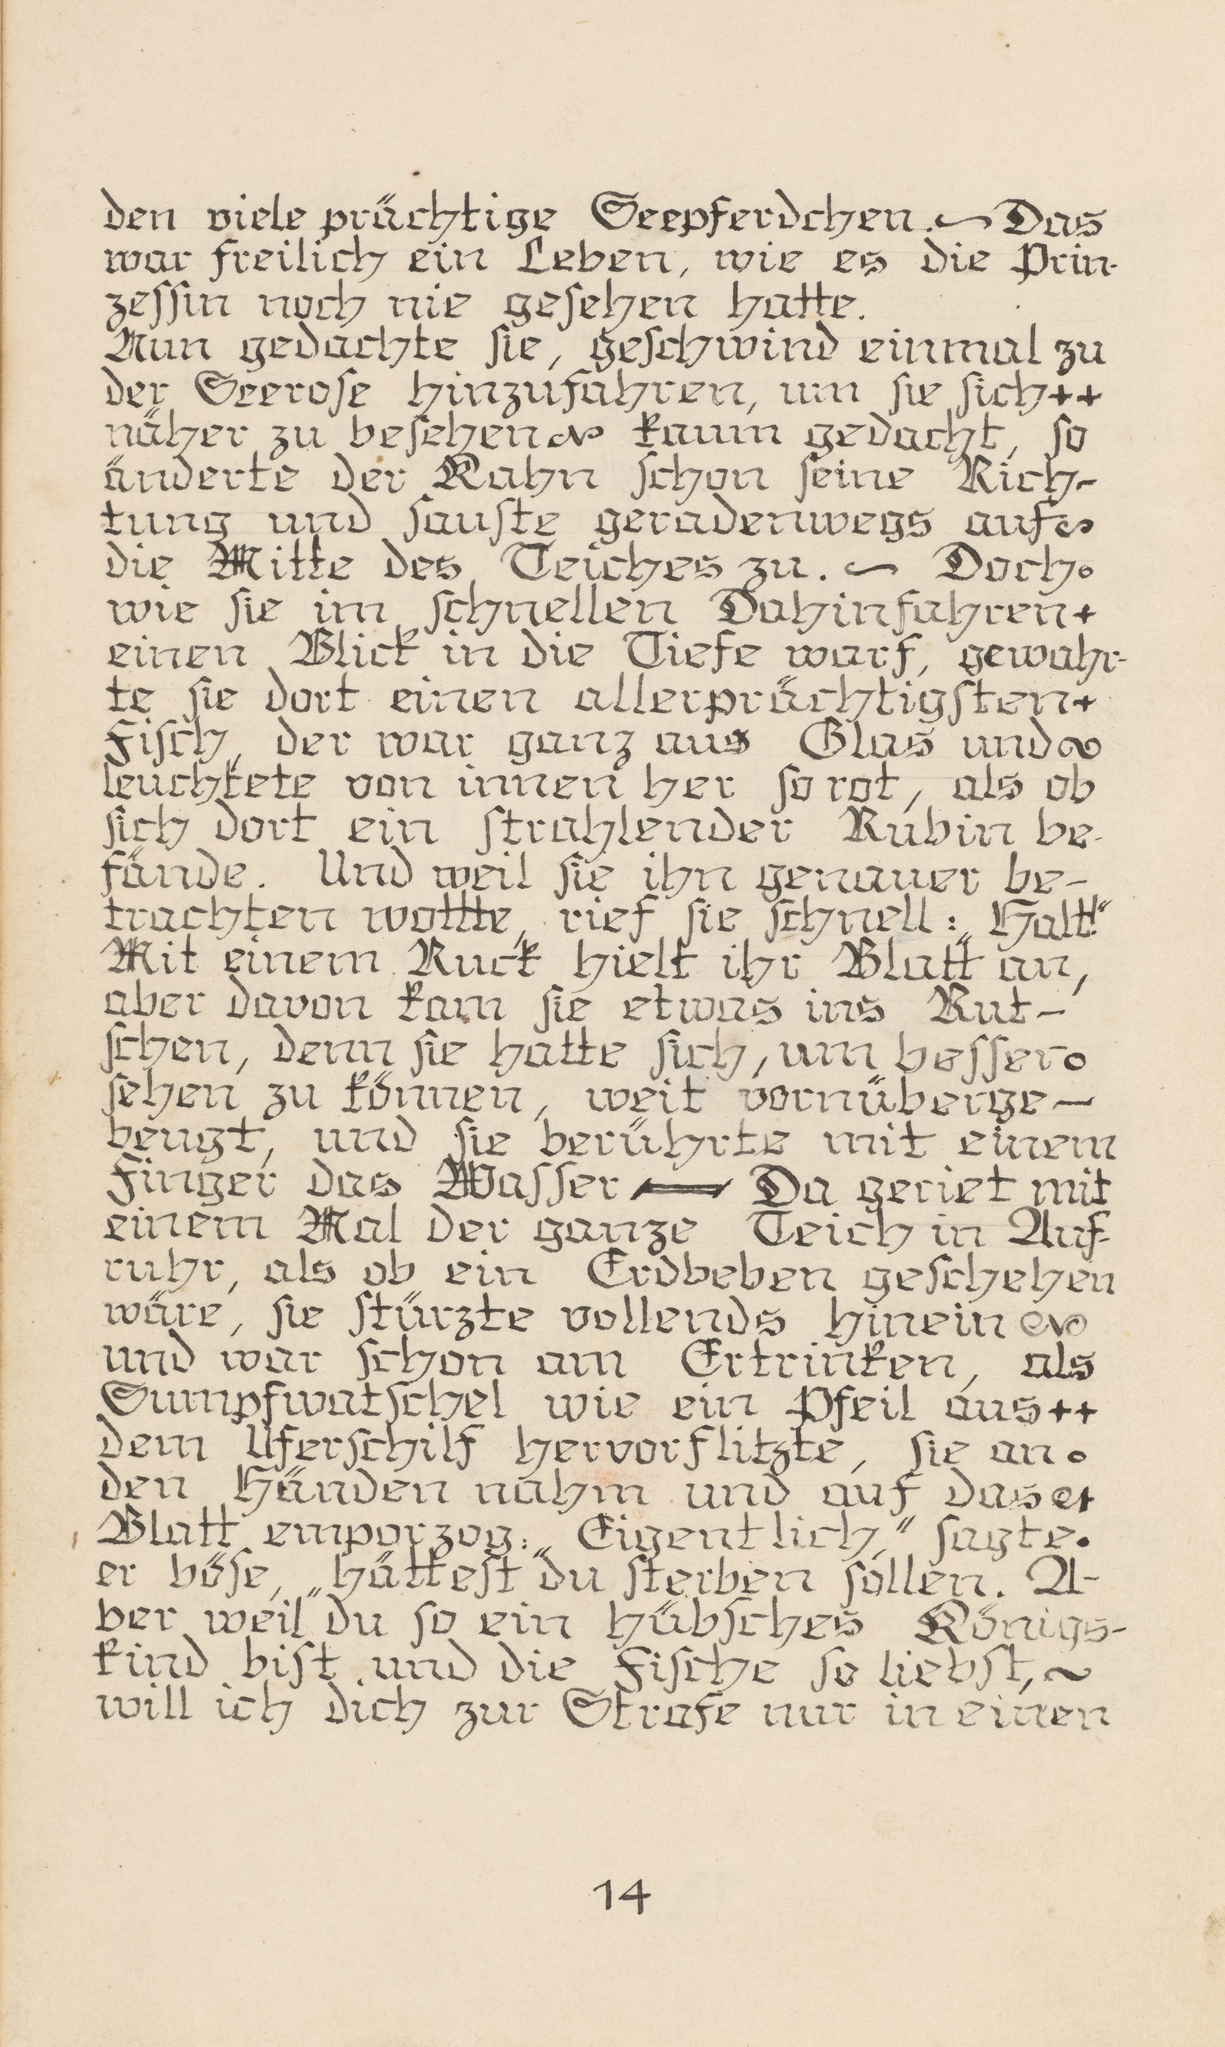 den viele prächtige Seepferdchen. ~ Das
war freilich ein Leben, wie es die Prin-
zessin noch nie gesehen hatte.
Nun gedachte sie, geschwind einmal zu
der Seerose hinzufahren, um sie sich++
näher zu besehen ~ kaum gedacht, so
änderte der Kahn schon seine Rich-
tung und sauste geradenwegs auf ~
die Mitte des Teiches zu. ~ Doch
wie sie im schnellen Dahinfahren+
einen Blick in die Tiefe warf, gewahr-
te sie dort einen allerprächtigsten+
Fisch, der war ganz aus Glas und ~
leuchtete von innen her so rot, als ob
sich dort ein strahlender Rubin be-
fände. Und weil sie ihn genauer be-
trachten wollte, rief sie schnell: „Halt!"
Mit einem Ruck hielt ihr Blatt an,
aber davon kam sie etwas ins Rut-
schen, denn sie hatte sich, um besser
sehen zu können, weit vornüberge-
beugt, und sie berührte mit einem
Finger das Wasser — Da geriet mit
einem Mal der ganze Teich in Auf-
ruhr, als ob ein Erdbeben geschehen
wäre, sie stürzte vollends hinein ~
und war schon am Ertrinken, als
Sumpfwatschel wie ein Pfeil aus++
dem Uferschilf hervorflitzte, sie an
den Händen nahm und auf das
Blatt emporzog: „Eigentlich," sagte
er böse, „hättest du sterben sollen. A-
ber weil du so ein hübsches Königs-
kind bist und die Fische so liebst, ~
will ich dich zur Strafe nur in einen
14